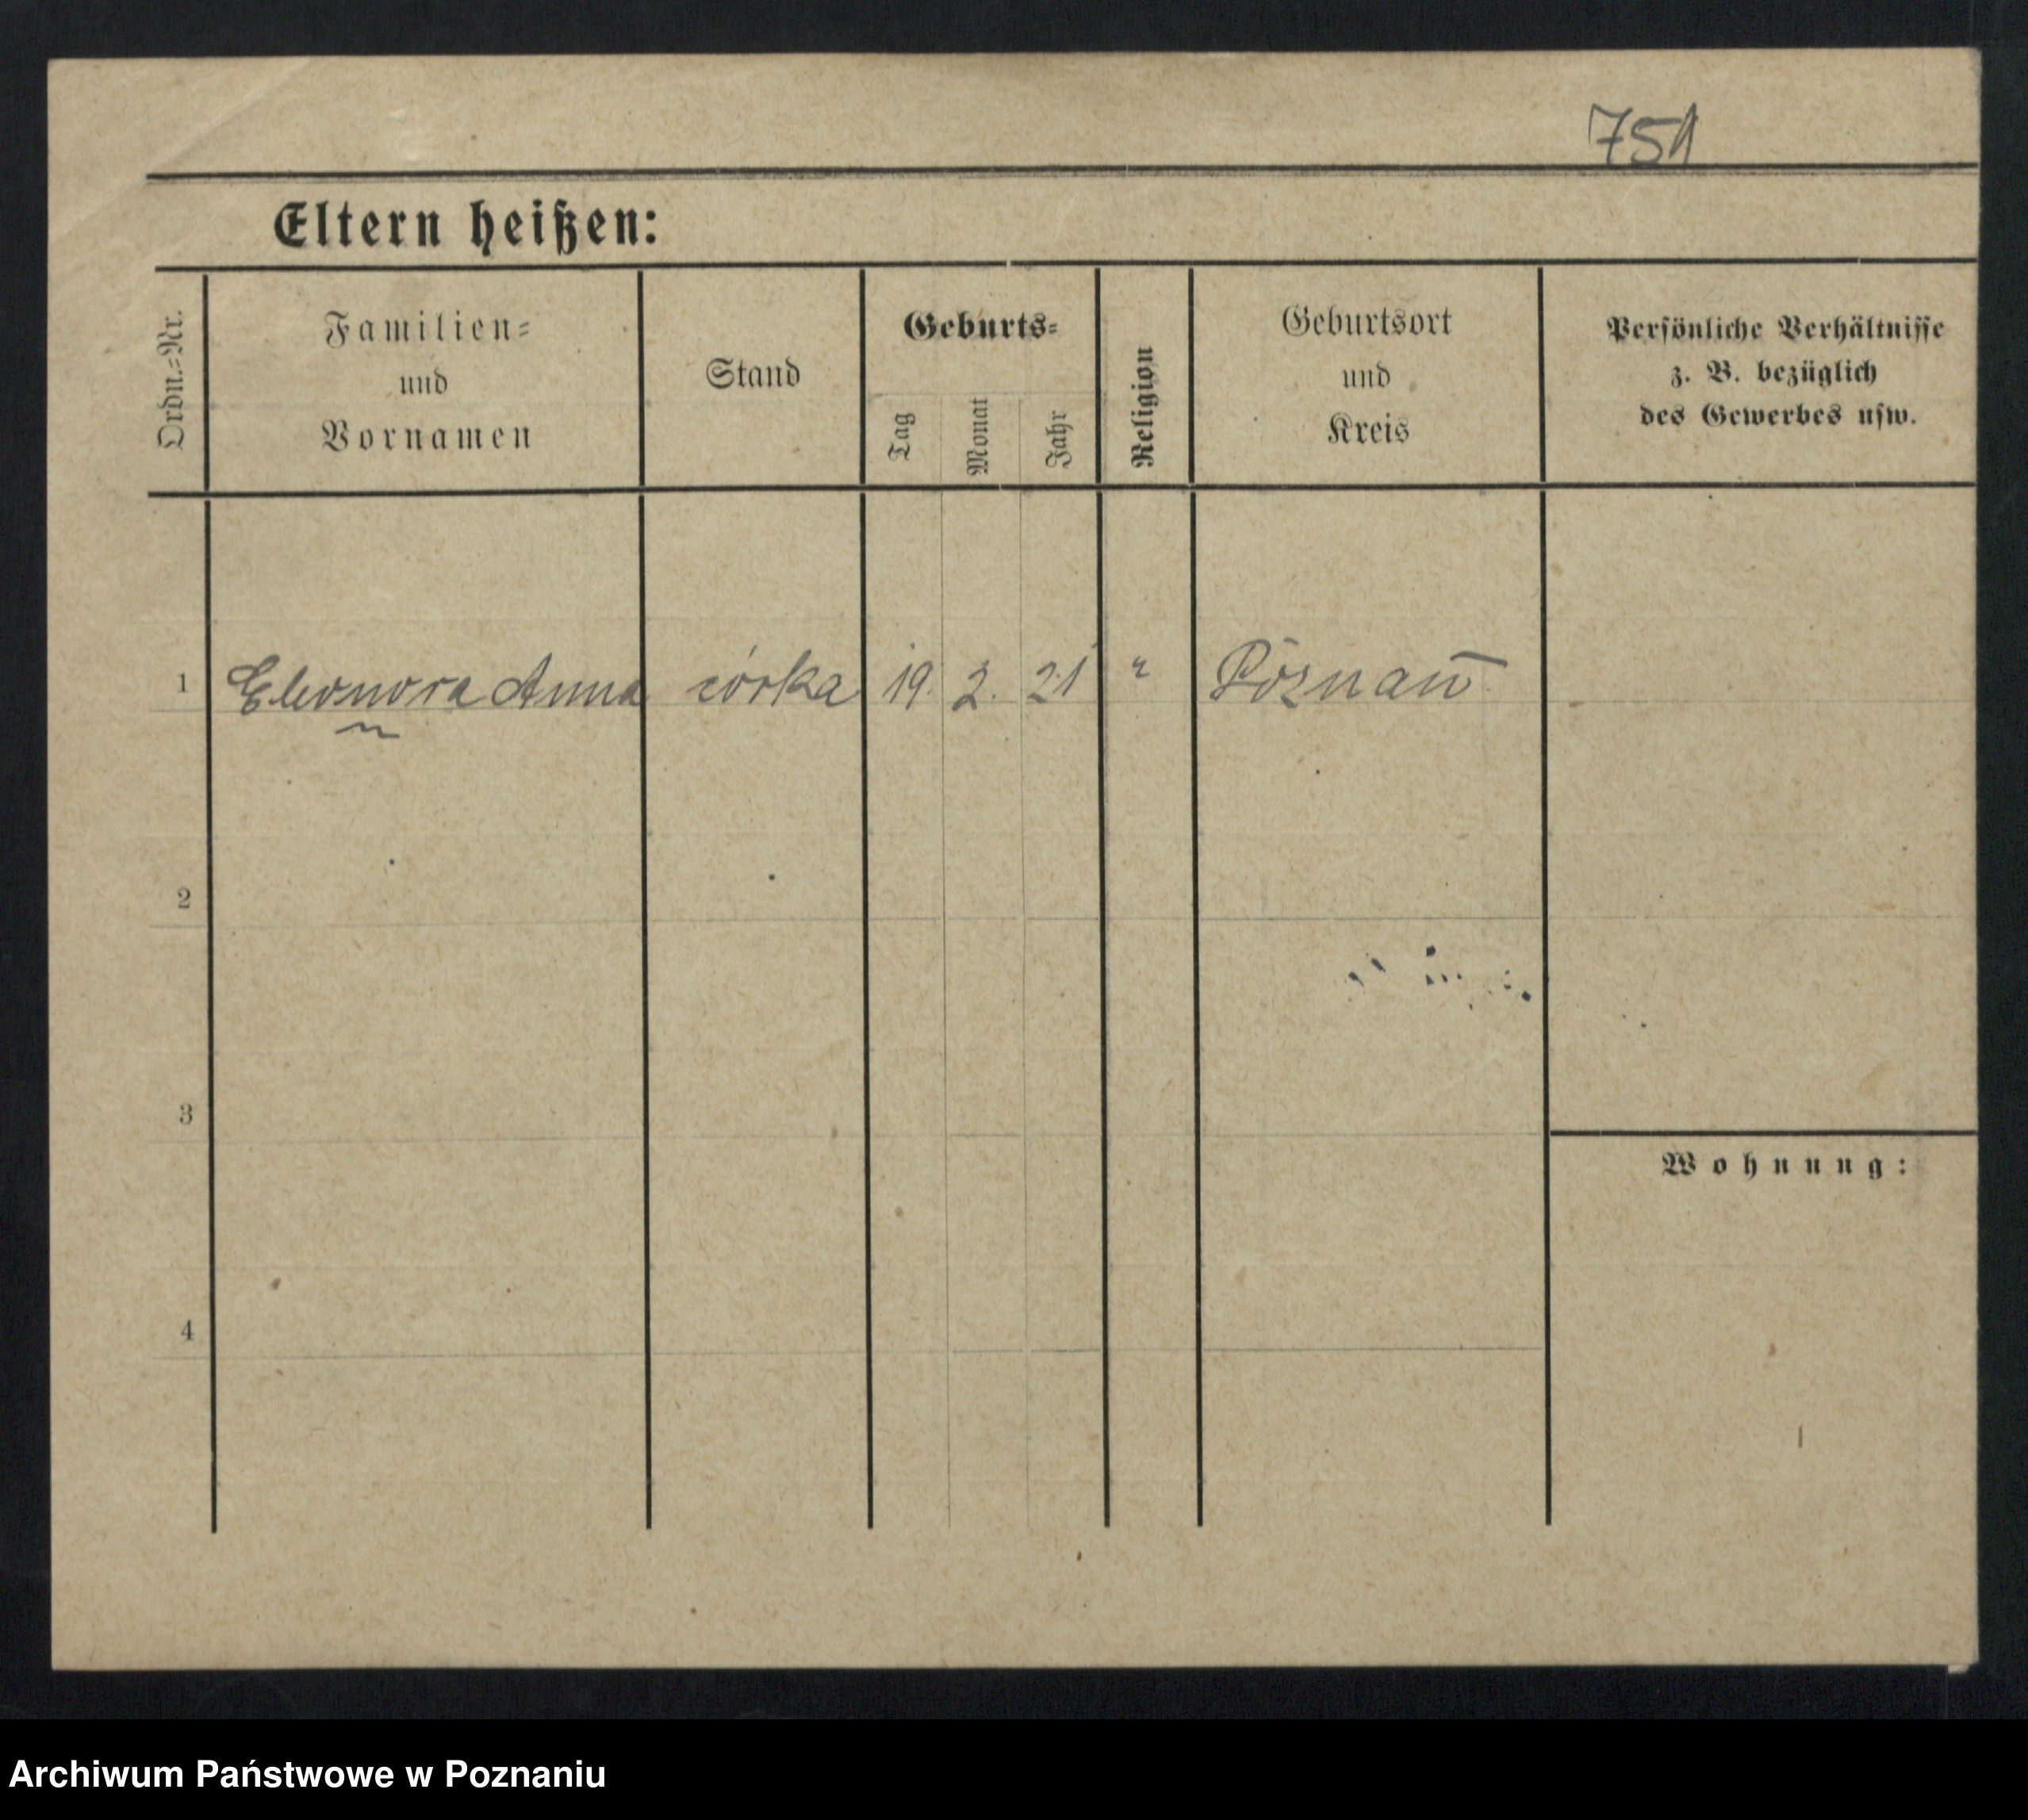 751
Eltern heißen:
Ordn.-Nr.
Familien-
und
Vornamen
Stand
Geburts-
Tag
Monat
Jahr
Religion
Geburtsort
und
Kreis
Persönliche Verhältnisse
z. B. bezüglich
des Gewerbes usw.
1 Eleonora Anna córka 19. 2. 21 " Poznań
2
3
Wohnung:
4
Archiwum Państwowe w Poznaniu